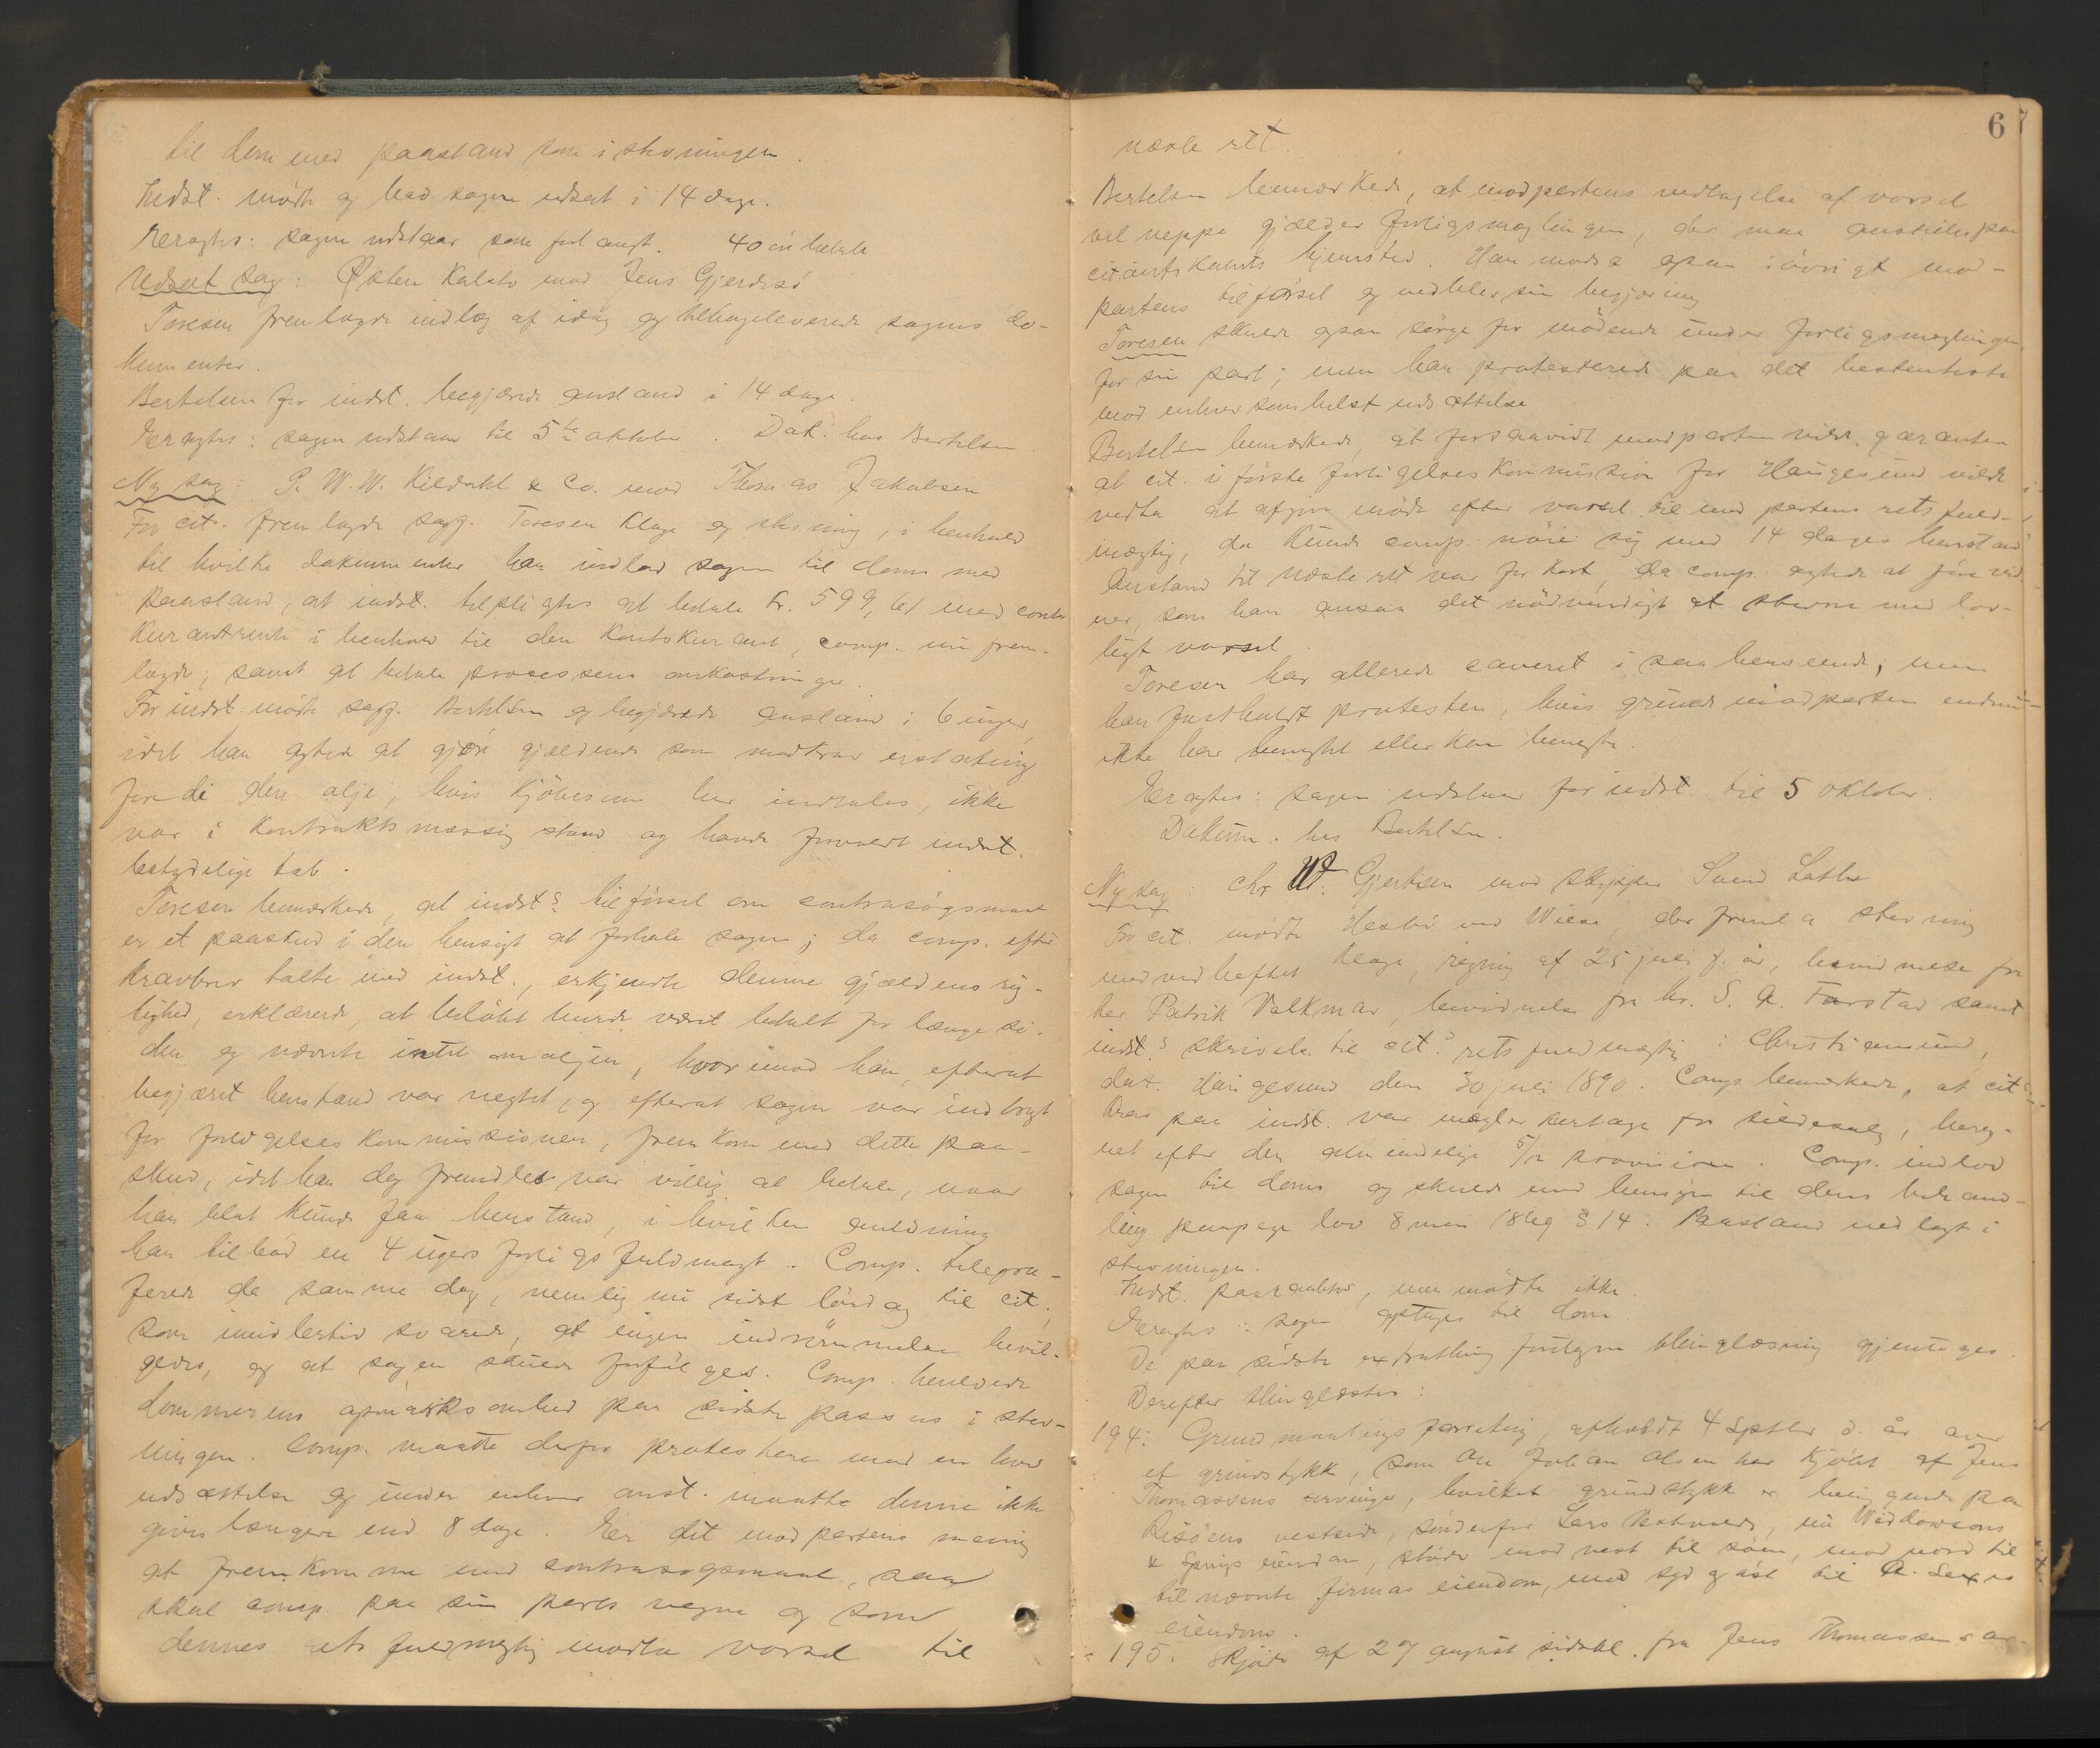 til dom med paastand som i stevningen.
Indst. mødte og bad sagen udsat i 14 dage.
Eragtes: sagen udstaar som forlangt. 40 øre betalt
Udsat sag: Østen Kaletø mod Jens Gjerdesø
Toresen fremlagde indlæg af idag og tilbageleverede sagens do-
kumenter.
Bertelsen for indst. begjærede anstand i 14 dage
Eragtes: sagen udstaar til 5te oktober. Dok. hos Bertelsen.
Ny sag: P. W. W. Kildahl & Co. mod Thomas Jakobsen
For cit. fremlagde sagf. Toresen klage og stevning, i henhold
til hvilke dokumenter han indlod sagen til doms med
paastand, at indst. tilpligtes at betale kr. 599,61 med conto
kurantrente i henhold til den kontokurant, comp. nu frem-
lagde, samt at betale processens omkostninger.
For indst. mødte sagf. Bertelsen og begjærede anstand i 6 uger,
idet han agtede at gjøre gjældende som modkrav erstatning
fordi den olje, hvis kjøbesum her indtales, ikke
var i kontraktsmæssig stand og havde forvoldt indst.
betydelige tab.
Toresen bemærkede, at indst.s tilførsel om contrasøgsmaal
er et paaskud i den hensigt at forhale sagen; da comp. efter
kravbrev talte med indst., erkjendte denne gjældens rig-
tighed, erklærede, at beløbet burde været betalt for længe si-
den og nævnte intet om oljen, hvorimod han, efterat
begjæret henstand var negtet, og efterat sagen var indbragt
for forligelseskommissionen, fremkom med dette paa-
skud, idet han dog fremdeles var villig at betale, naar
han blot kunde faa henstand, i hvilken anledning
han tilbød en 4 ugers forligsfuldmagt. Comp. telegra-
ferede samme dag, nemlig nu sidst lørdag til cit,
som imidlertid svarede, at ingen indrømmelse bevil-
gedes, og at sagen skulde forfølges. Comp. henledede
dommerens opmærksomhed paa sidste passus i stev-
ningen. Comp. maatte derfor protestere mod enhver
udsættelse og under enhver omst. maatte denne ikke
gives længere end 8 dage. Er det modpartens mening
at fremkomme med contrasøgsmaal, saa
skal comp. paa sin parts vegne og som
dennes retsfuldmægtig modta varsel til
6
næste ret.
Bertelsen bemærkede, at modpartens vedtagelse af varsel
vel neppe gjælder forligsmæglingen, der maa anstilles paa
citantskabets hjemsted. Han modsa ogsaa iøvrigt mod-
partens tilførsel og vedblev sin begjæring
Toresen skulde ogsaa sørge for mødende under forligsmæglingen
for sin part; men han protesterede paa det bestemteste
mod enhver somhelst udsættelse
Bertelsen bemærkede, at forsaavidt modparten vilde garantere
at cit. i første forligelseskommission for Haugesund vilde
vedta at afgive møde efter varsel til modpartens retsfuld-
mægtig, da kunde comp. nøie sig med 14 dages henstand
Anstand til næste ret var for kort, da comp. agtede at føre vid-
ner, som han ansaa det nødvendigt at stevne med lov-
ligt varsel.
Toresen har allerede caveret i saa henseende, men
han fastholdt protesten, hvis grund modparten endnu
ikke har benegtet eller kan benegte.
Eragtes: sagen udstaar for indst. til 5 oktober.
Dokum. hos Bertelsen.
Ny sag: Chr. W. Gjertsen mod skipper Svend Lathe
For cit. mødte Hesbø ved Wiese, der fremla stevning
med vedheftet klage, regning af 25 juli f. år, bevidnelse fra
her Patrik Valkmar, bevidnelse fra hr. S. A. Farstad samt
indst.s skrivelse til cit.s retsfuldmægtig i Christiansund,
dat. Haugesund den 30 juli 1890. Comp. bemærkede, at cit.s
krav paa indst. var megler kurtage for sildesalg, bereg-
net efter den almindelige 5/12 provision. Comp. indlod
sagen til doms og skulde med hensyn til dens behand-
ling paapege lov 8 mai 1869 § 14. Paastand nedlagt i
stevningen.
Indst. paaraabtes, men mødte ikke.
Eragtes: sagen optages til dom.
De paa sidste extrathing foretagne thinglæsning gjentages.
Derefter thinglæstes:
194: Grundmaalingsforretning, afholdt 4 Septbr d. år over
et grundstykke, som Ole Johan Olsen har kjøbt af Jens
Thomassens arvinger, hvilket grundstykke er beliggende paa
Risøens vestside, søndenfor Lars Natvands, nu Widdowsons
& Springs eiendom, støder mod vest til søen, mod nord til
til nævnte firmas eiendom, mod syd og øst til A. Sexes
eiendom.
195. Skjøde af 27 august sidstl. fra Jens Thomassens ar-